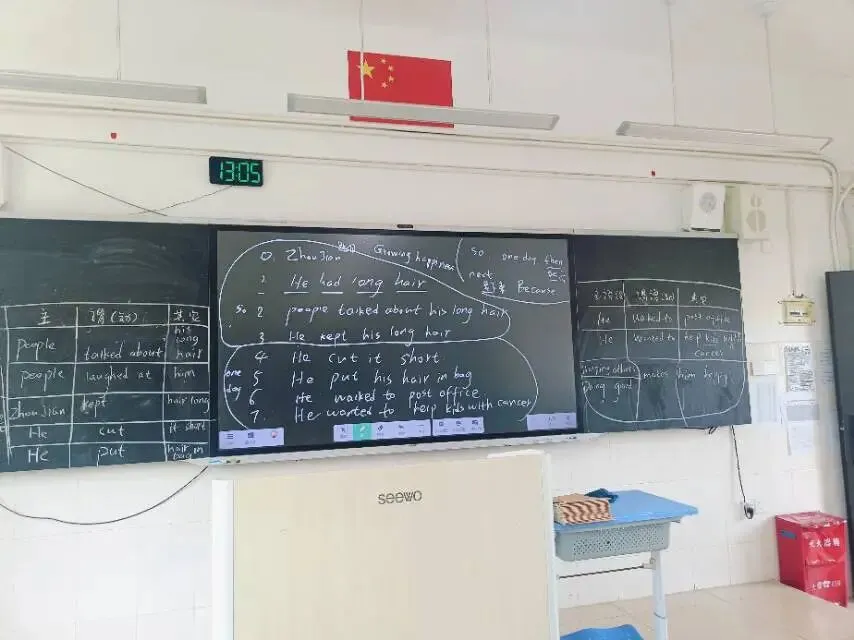 13:05
主 谓(动) 其它
people talked about his long hair
people laughed at him
ZhouJian kept hair long
He cut it short
He put hair in bag
0. ZhouJian Growing happiness
1 He had long hair
so 2 people talked about his long hair
3 He kept his long hair
one day
4 He cut it short
5 He put his hair in bag
6 He walked to post office
7. He wanted to help kids with cancer
so one day then
next
Because
其它
He walked to post office
He wanted to help kids with cancer
helping others
Doing good makes him happy
seewo
灭火器箱